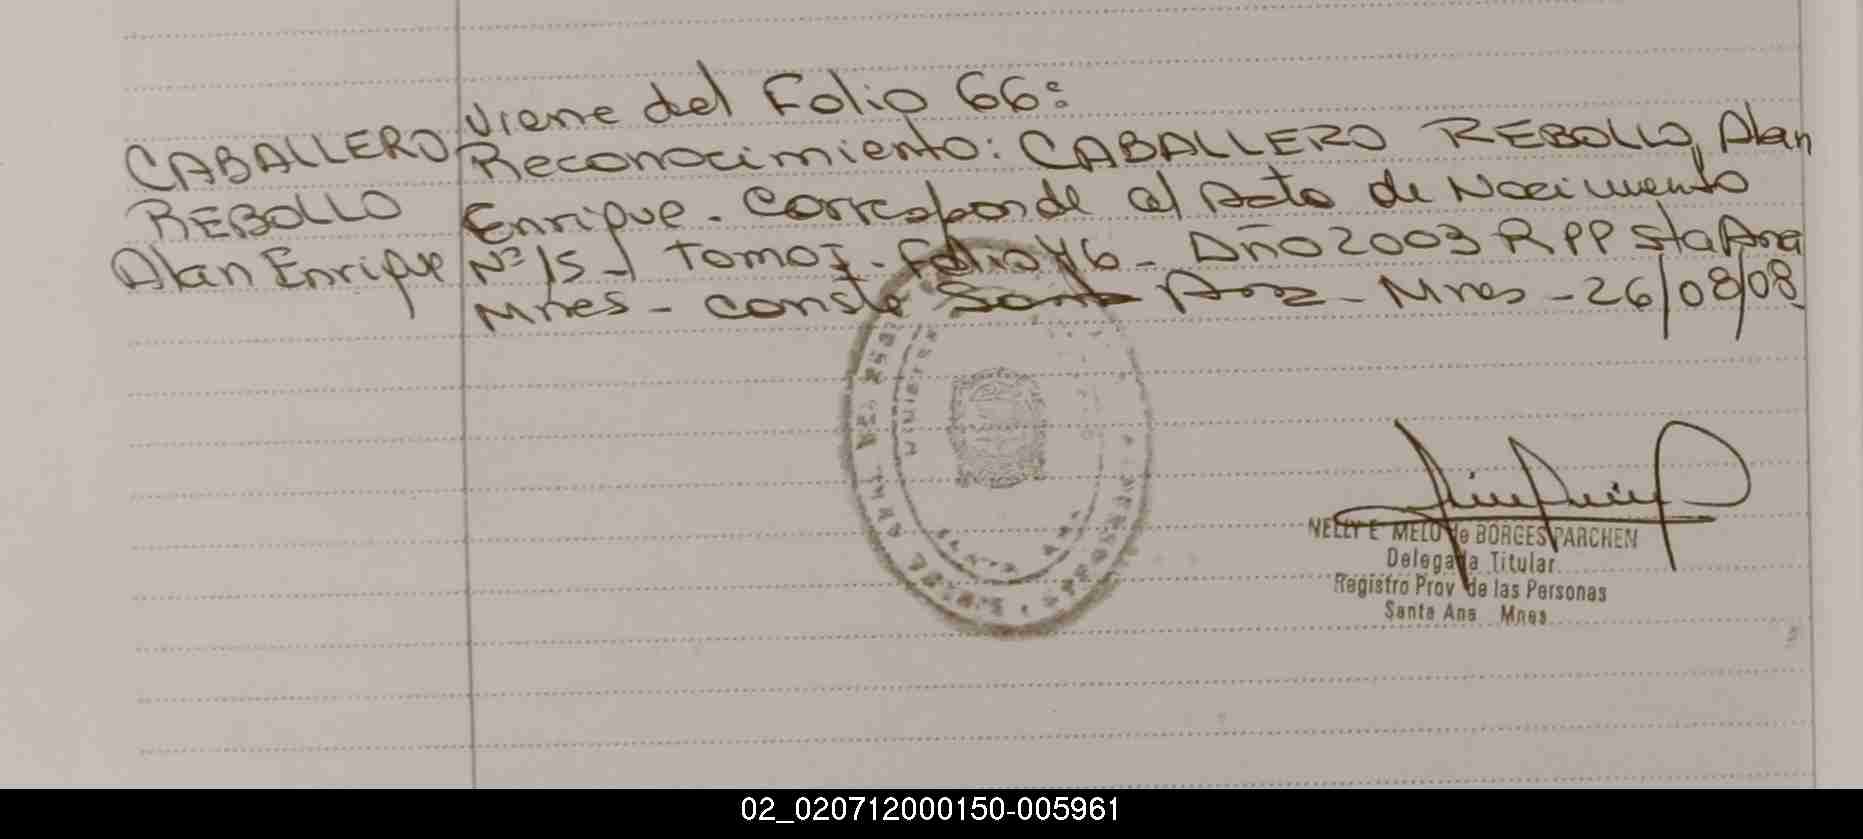 Viene del Folio 66:
CABALLERO Reconocimiento: CABALLERO REBOLLO, Alan
REBOLLO Enrique. Corresponde al Acta de Nacimiento
Alan Enrique Nº 15 - Tomo I - Folio 46 - Año 2003 RPP Sta Ana
Mnes - Conste Santa Ana - Mnes - 26/08/08
NELLY E MELO de BORGES PARCHEN
Delegada Titular
Registro Prov de las Personas
Santa Ana Mnes
02_020712000150-005961